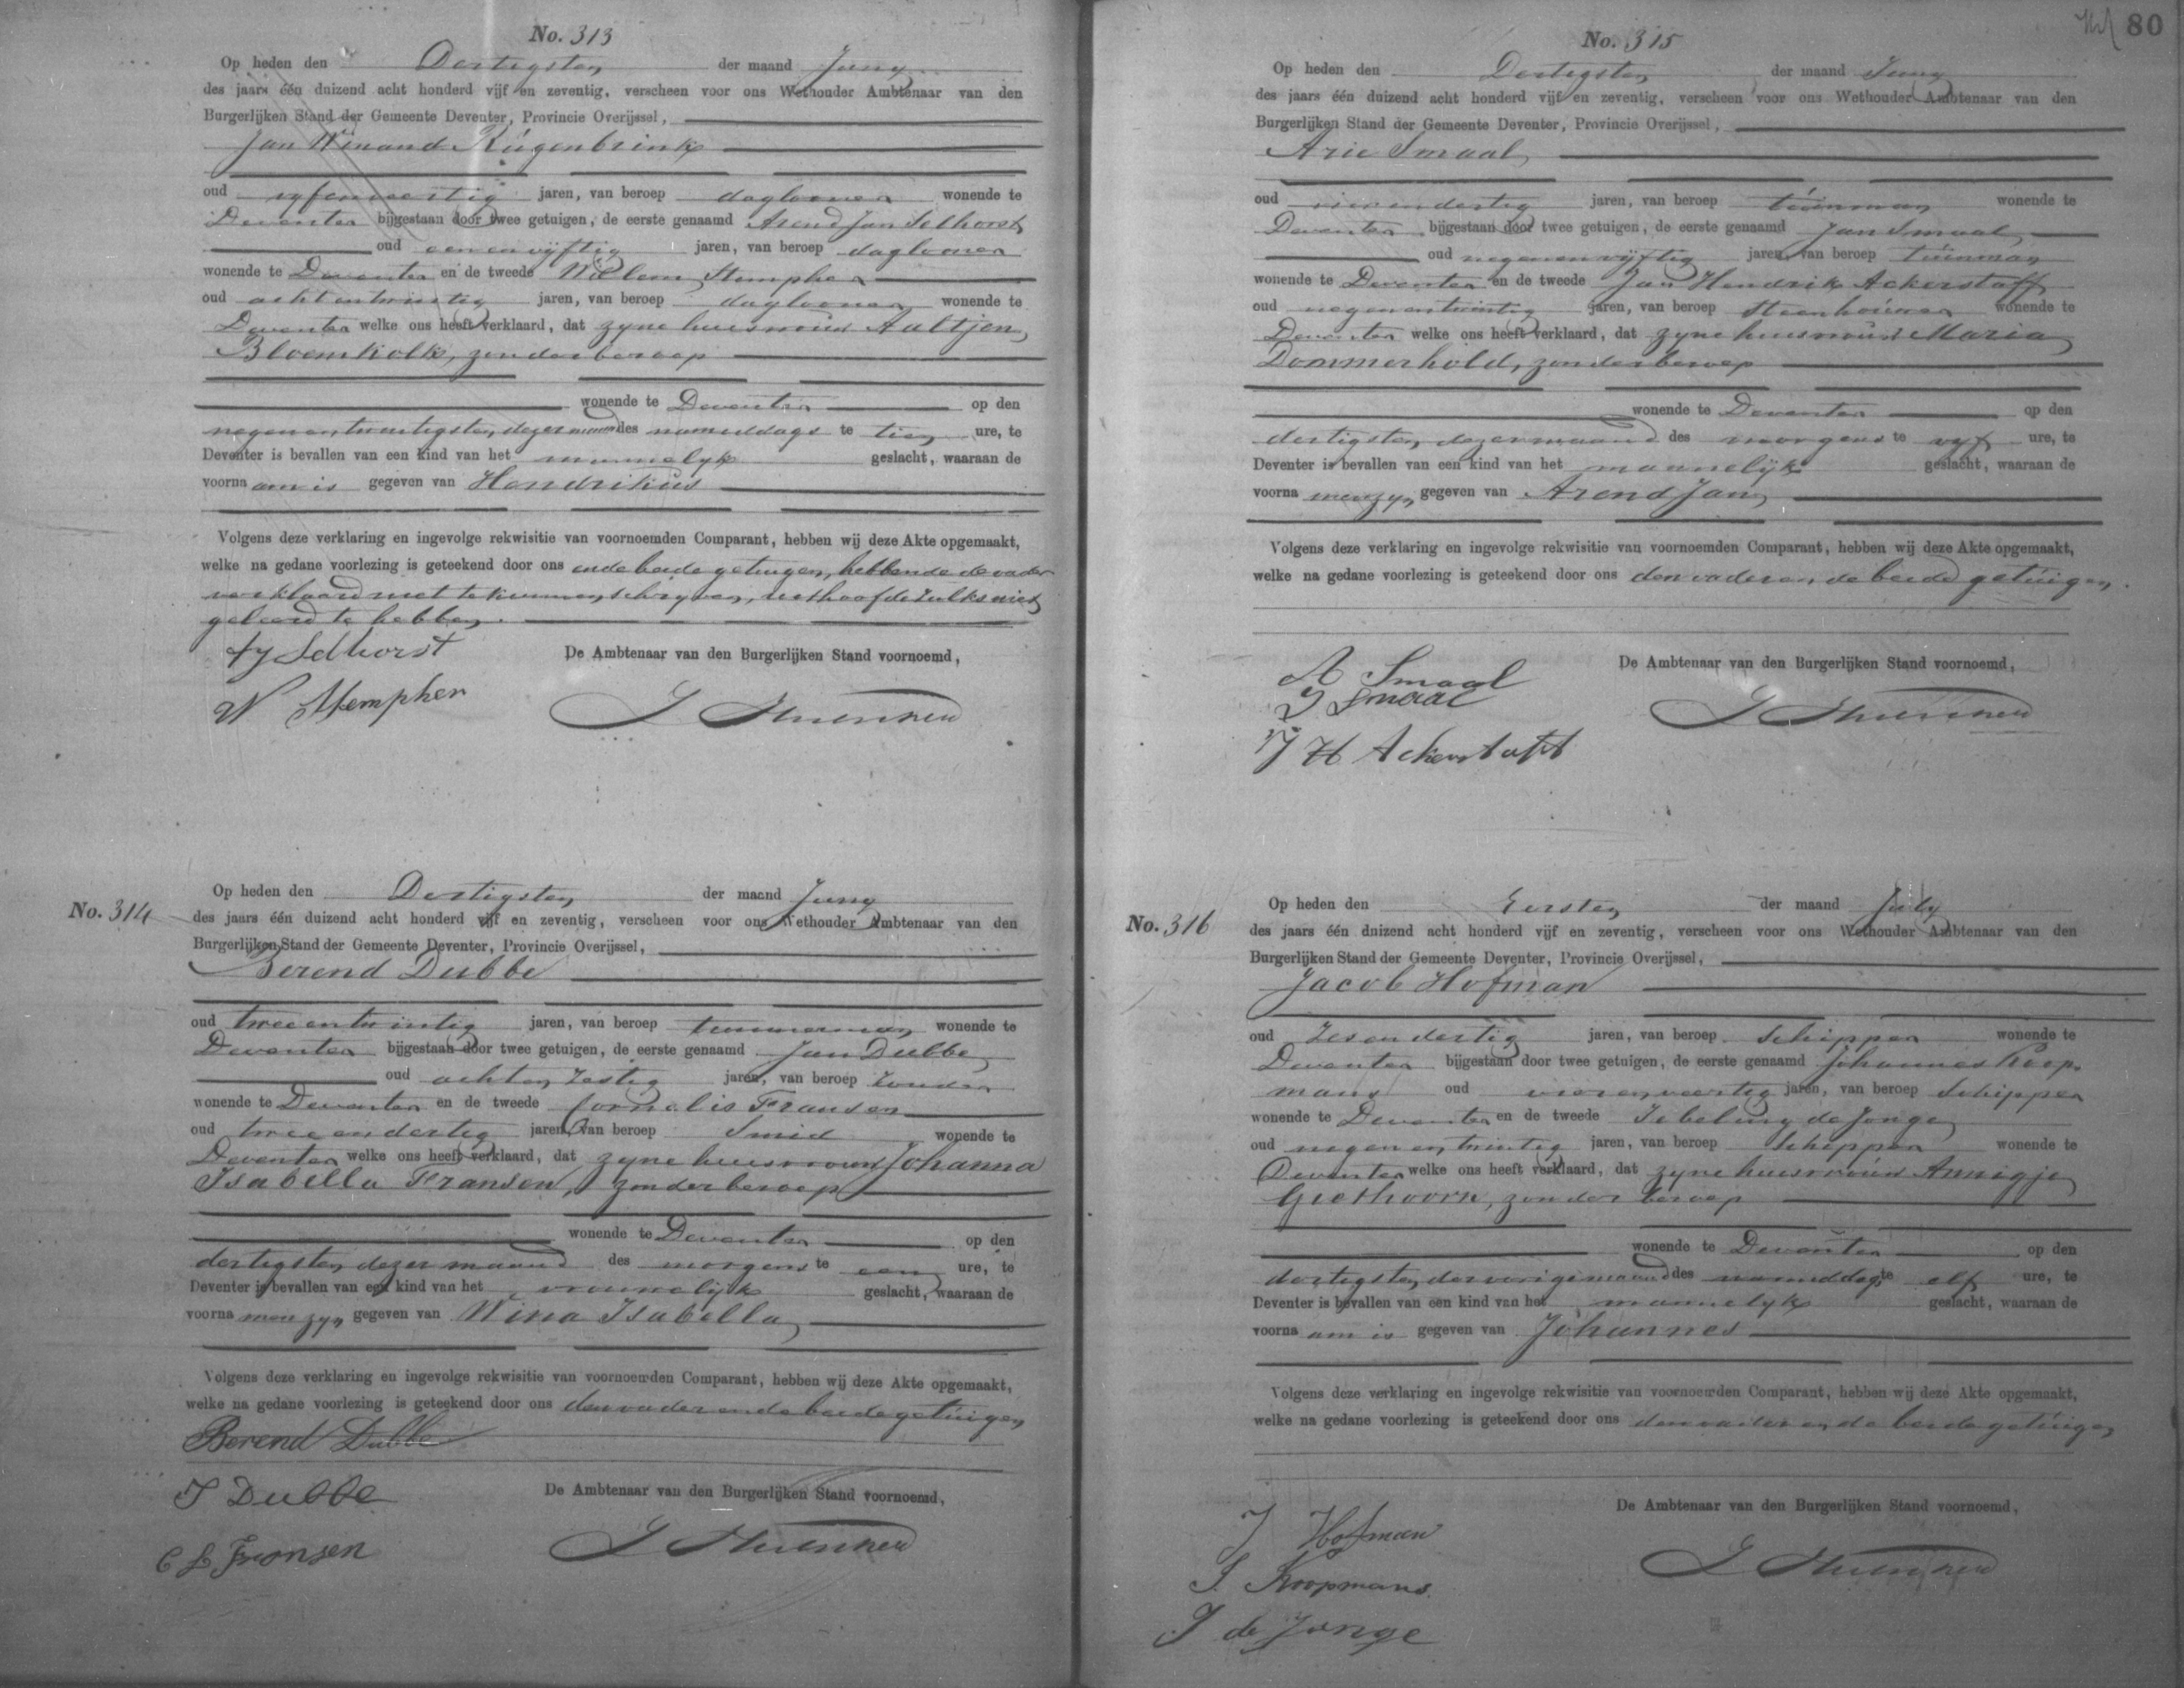 No. 313
Op heden den Dertigsten der maand Juny
des jaars één duizend acht honderd vijf en zeventig, verscheen voor ons Wethouder Ambtenaar van den
Burgerlijken Stand der Gemeente Deventer, Provincie Overijssel,
Jan Winand Rúgenbrink
oud vyfenveertig jaren, van beroep daglooner wonende te
Deventer bijgestaan door twee getuigen, de eerste genaamd Arend Jan Selhorst
oud eenenvyftig jaren, van beroep daglooner
wonende te Deventer en de tweede Willem Stempher
oud achtentwintig jaren, van beroep daglooner wonende te
Deventer welke ons heeft verklaard, dat zyne huisvrouw Aaltjen
Bloemkolk, zonder beroep
wonende te Deventer op den
negenentwintigsten dezer maand des namiddags te tien ure, te
Deventer is bevallen van een kind van het mannelyk geslacht, waaraan de
voorna am is gegeven van Hendrikús
Volgens deze verklaring en ingevolge rekwisitie van voornoemden Comparant, hebben wij deze Akte opgemaakt,
welke na gedane voorlezing is geteekend door ons en de beide getuigen, hebbende de vader
verklaard niet te kunnen schryven, uit hoofde zulks niet
geleerd te hebben.
AJ Selhorst
De Ambtenaar van den Burgerlijken Stand voornoemd,
W Stempher
No. 314
Op heden den Dertigsten der maand Juny
des jaars één duizend acht honderd vijf en zeventig, verscheen voor ons Wethouder Ambtenaar van den
Burgerlijken Stand der Gemeente Deventer, Provincie Overijssel,
Berend Dubbe
oud tweeentwintig jaren, van beroep timmerman wonende te
Deventer bijgestaan door twee getuigen, de eerste genaamd Jan Dubbe
oud achtenzestig jaren, van beroep zonder
wonende te Deventer en de tweede Cornelis Fransen
oud tweeendertig jaren, van beroep Smid wonende te
Deventer welke ons heeft verklaard, dat zyne huisvrouw Johanna
Isabella Fransen, zonder beroep
wonende te Deventer op den
dertigsten dezer maand des morgens te een ure, te
Deventer is bevallen van een kind van het vrouwelyk geslacht, waaraan de
voorna men zyn gegeven van Wina Isabella
Volgens deze verklaring en ingevolge rekwisitie van voornoemden Comparant, hebben wij deze Akte opgemaakt,
welke na gedane voorlezing is geteekend door ons den vader en de beide getúigen
Berend Dubbe
J Dubbe
De Ambtenaar van den Burgerlijken Stand voornoemd,
C L Fransen
80
No. 315
Op heden den Dertigsten der maand Juny
des jaars één duizend acht honderd vijf en zeventig, verscheen voor ons Wethouder Ambtenaar van den
Burgerlijken Stand der Gemeente Deventer, Provincie Overijssel,
Arie Smaal
oud vierendertig jaren, van beroep túinman wonende te
Deventer bijgestaan door twee getuigen, de eerste genaamd Jan Smaal
oud negenenvyftig jaren, van beroep túinman
wonende te Deventer en de tweede Jan Hendrik Ackerstaff
oud negenentwintig jaren, van beroep Steenhoúwer wonende te
Deventer welke ons heeft verklaard, dat zyne huisvroúw Maria
Dommerhold, zonder beroep
wonende te Deventer op den
dertigsten dezer maand des morgens te vyf ure, te
Deventer is bevallen van een kind van het mannelijk geslacht, waaraan de
voorna men zyn gegeven van Arend Jan
Volgens deze verklaring en ingevolge rekwisitie van voornoemden Comparant, hebben wij deze Akte opgemaakt,
welke na gedane voorlezing is geteekend door ons den vader en de beide getúigen.
A Smaal
De Ambtenaar van den Burgerlijken Stand voornoemd,
J Smaal
J H Ackerstaff
No. 316
Op heden den Eersten der maand July
des jaars één duizend acht honderd vijf en zeventig, verscheen voor ons Wethouder Ambtenaar van den
Burgerlijken Stand der Gemeente Deventer, Provincie Overijssel,
Jacob Hofman
oud zesendertig jaren, van beroep Schipper wonende te
Deventer bijgestaan door twee getuigen, de eerste genaamd Johannes Koop-
mans oud vierenveertig jaren, van beroep Schipper
wonende te Deventer en de tweede Iebeling de Jonge
oud negenentwintig jaren, van beroep Schipper wonende te
Deventer welke ons heeft verklaard, dat zyne huisvroúw Annigje
Giethoorn, zonder beroep
wonende te Deventer op den
dertigsten der vorige maand des namiddags te elf ure, te
Deventer is bevallen van een kind van het mannelyk geslacht, waaraan de
voorna am is gegeven van Johannes
Volgens deze verklaring en ingevolge rekwisitie van voornoemden Comparant, hebben wij deze Akte opgemaakt,
welke na gedane voorlezing is geteekend door ons den vader en de beide getúigen
De Ambtenaar van den Burgerlijken Stand voornoemd,
J Hofman
S. Koopmans.
J de Jonge